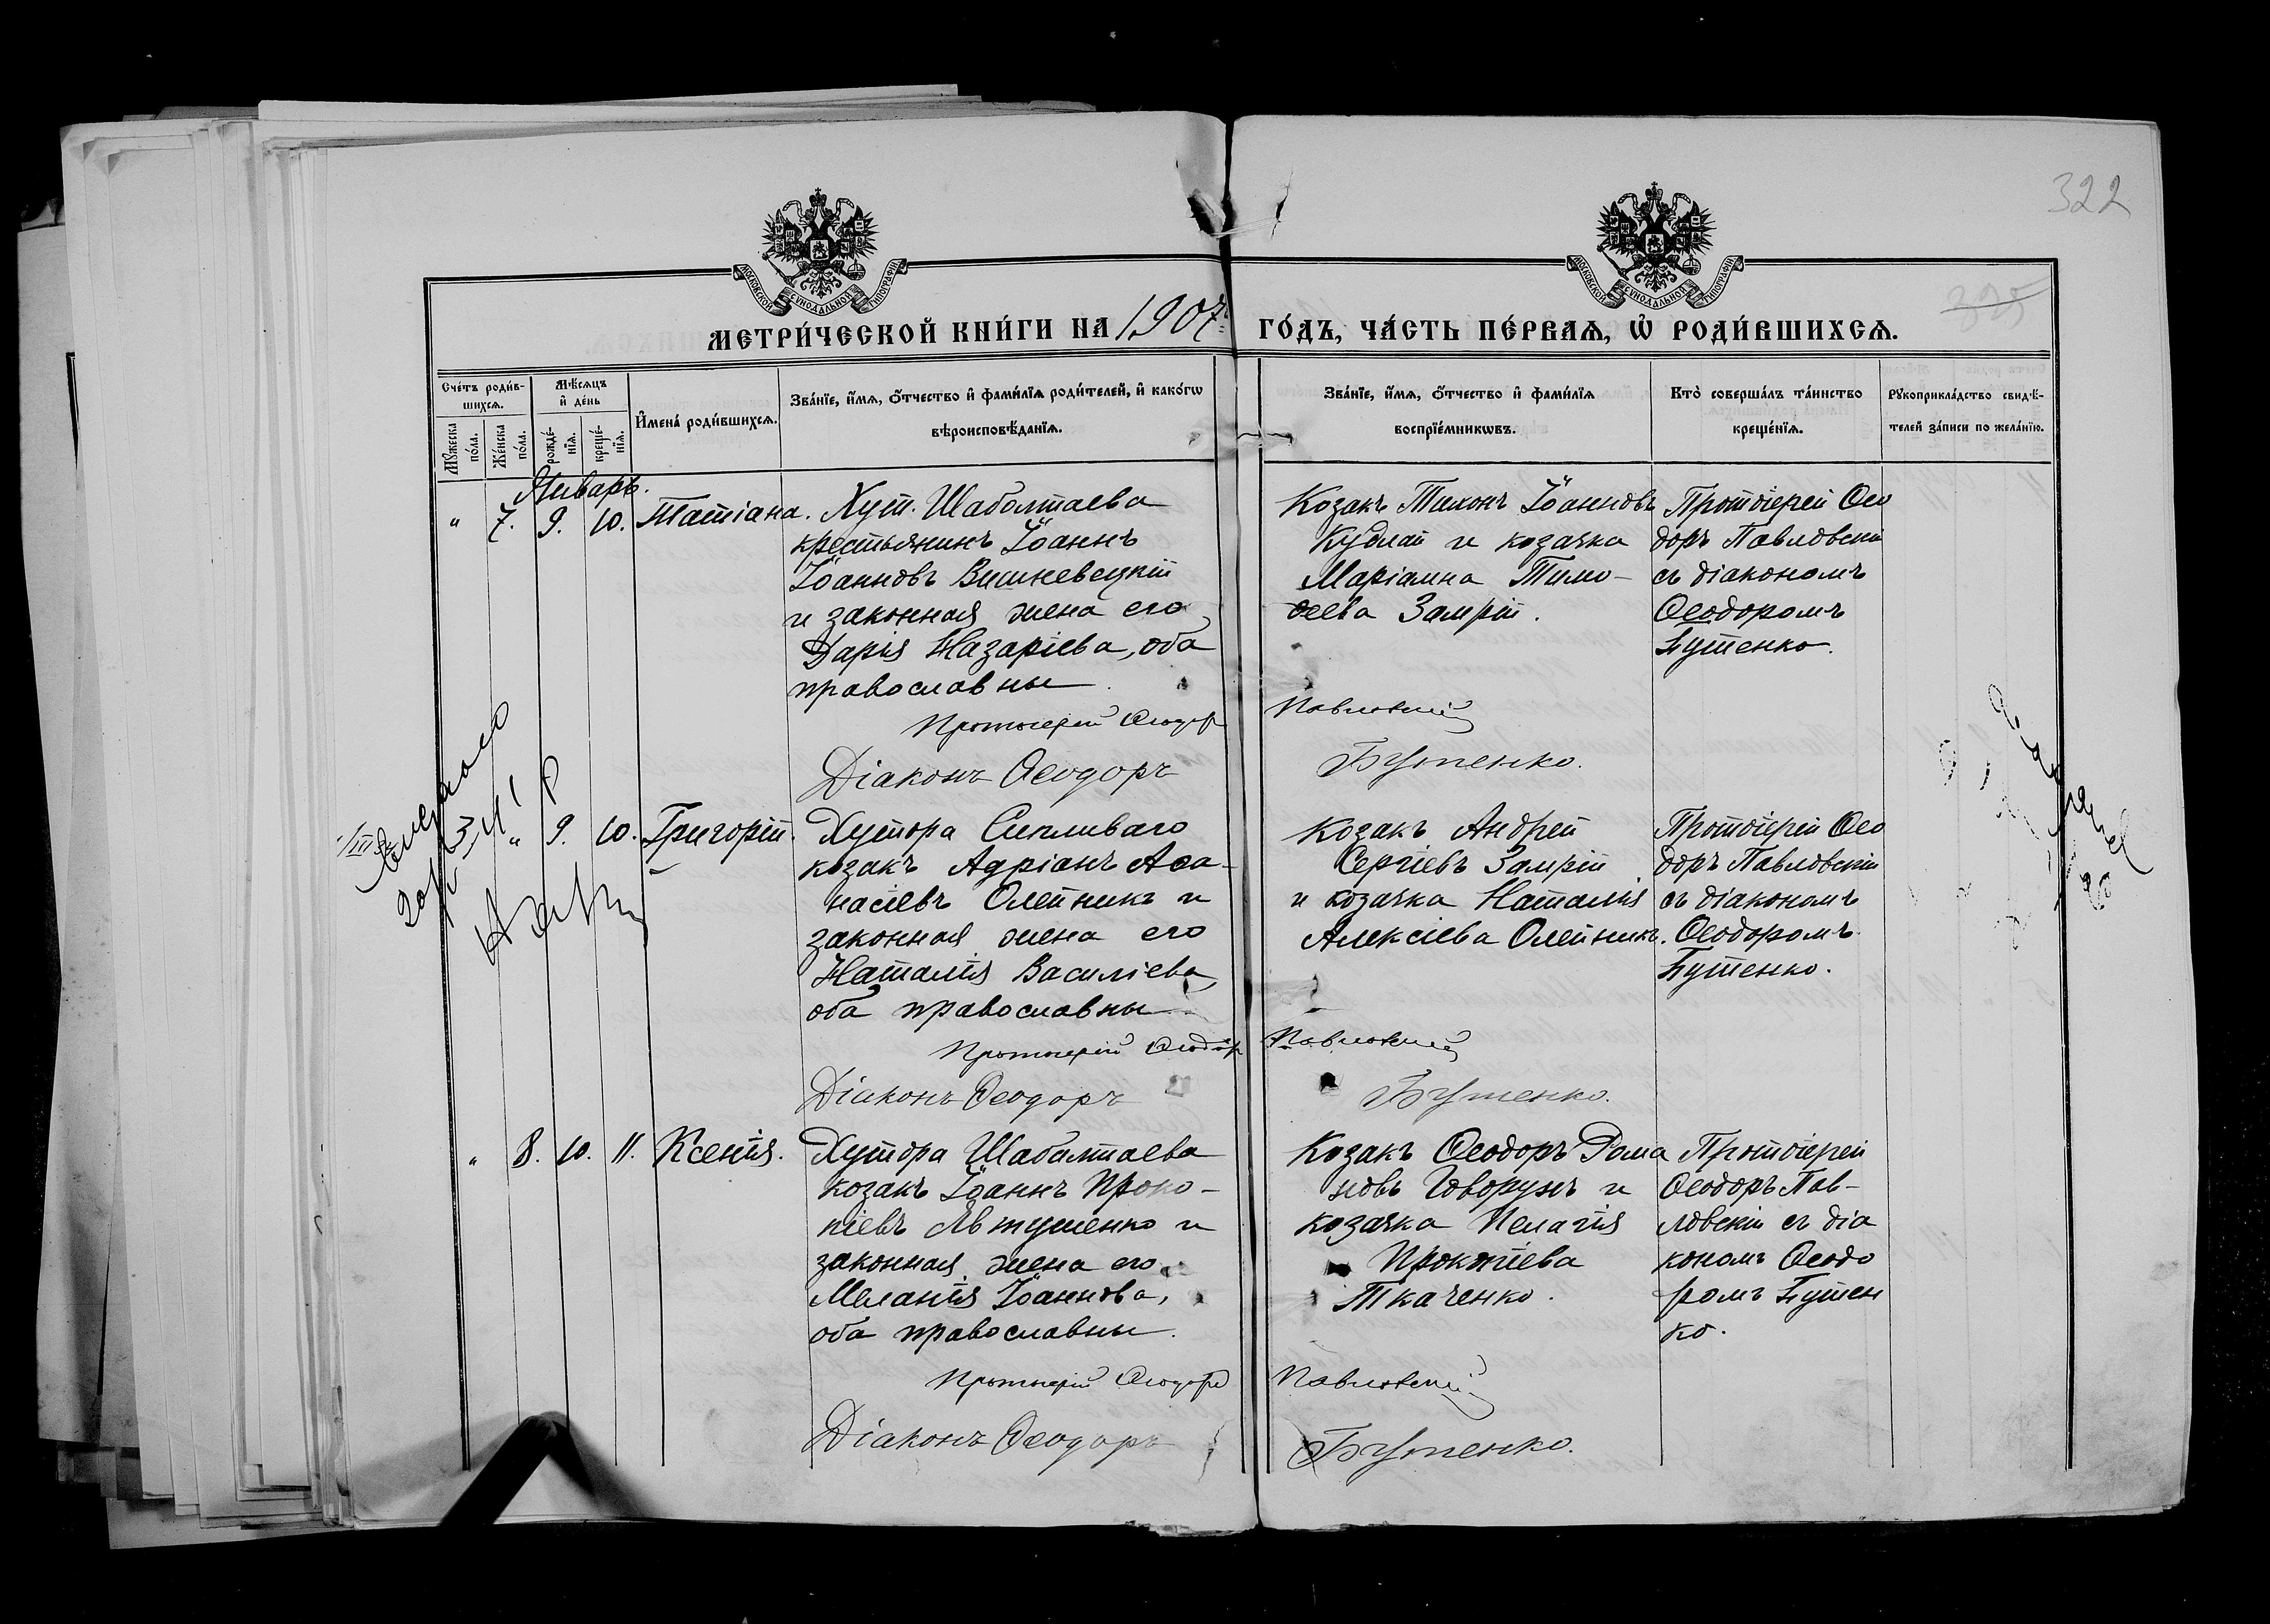 322
МОСКОВСКОЙ СѴНОДАЛЬНОЙ ТИПОГРАФІИ
МОСКОВСКОЙ СѴНОДАЛЬНОЙ ТИПОГРАФІИ
МЕТРИ́ЧЕСКОЙ КНИ́ГИ НА 1907 ГО́ДЪ, ЧА́СТЬ ПЕ́РВАѦ, Ѡ҆ РОДИ́ВШИХСѦ.
Сче́тъ роди́в-
шихсѧ.
Мꙋ́жеска по́ла.
Же́нска по́ла.
Мѣ́сѧцъ
и҆ де́нь
рожде́-
нїѧ.
креще́-
нїѧ.
И҆мена̀ роди́вшихсѧ.
Зва́нїе, и҆́мѧ, ѻ҆́тчество и҆ фами́лїѧ роди́телей, и҆ како́гѡ
вѣроисповѣ́данїѧ.
Зва́нїе, и҆́мѧ, ѻ҆́тчество и҆ фами́лїѧ
воспрїе́мникѡвъ.
Кто̀ соверша́лъ та́инство
креще́нїѧ.
Рꙋкоприкла́дство свидѣ́-
телей за́писи по жела́нїю.
Январь.
" 7. 9. 10. Татіана.
Хут. Шаболтаева
крестьянинъ Іоаннъ
Іоанновъ Вишневецкій
и законная жена его
Дарія Назаріева, оба
православны.
Козакъ Тихонъ Іоанновъ
Кублай и козачка
Маріанна Тимо-
ѳеева Замрій.
Протоіерей Ѳео
доръ Павловскій
съ діакономъ
Ѳеодоромъ
Бутенко.
Протоіерей Ѳеодоръ Павловскій
Діаконъ Ѳеодоръ Бутенко.
4 " 9. 10. Григорій.
Хутора Сипливаго
козакъ Адріанъ Аѳа-
насіевъ Олейникъ и
законная жена его
Наталія Василіева,
оба православны
Козакъ Андрей
Сергіевъ Замрій
и козачка Наталія
Алексіева Олейникъ.
Протоіерей Ѳео
доръ Павловскій
съ діакономъ
Ѳеодоромъ
Бутенко.
Протоіерей Ѳеодоръ Павловскій
Діаконъ Ѳеодоръ Бутенко.
" 8. 10. 11. Ксенія.
Хутора Шабалтаева
козакъ Іоаннъ Проко-
піевъ Явтушенко и
законная жена его
Меланія Іоаннова,
оба православны.
Козакъ Ѳеодоръ Рома
новъ Говорунъ и
козачка Пелагія
Прокопіева
Ткаченко.
Протоіерей
Ѳеодоръ Пав-
ловскій съ діа
кономъ Ѳеодо
ромъ Бутен
ко.
Протоіерей Ѳеодоръ Павловскій
Діаконъ Ѳеодоръ Бутенко.